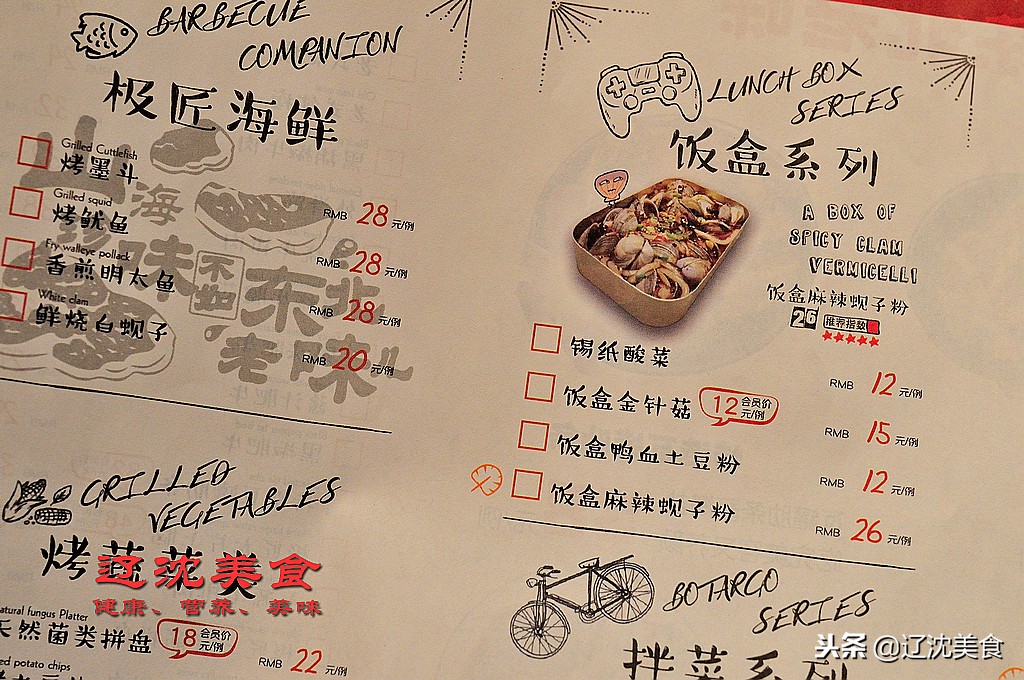 BARBECUE
COMPANION
极匠海鲜
Grilled Cuttlefish
烤墨斗
RMB 28元/例
Grilled squid
烤鱿鱼
RMB 28元/例
Fry walleye pollack
香煎明太鱼
RMB 28元/例
White clam
鲜烧白蚬子
RMB 20元/例
山
海
珍味
不如
东北
老味儿
GRILLED
VEGETABLES
烤蔬菜
atural fungus Platter
天然菌类拼盘
18会员价元/例
RMB 22元/例
ed potato chips
LUNCH BOX
SERIES
饭盒系列
A BOX OF
SPICY CLAM
VERMICELLI
饭盒麻辣蚬子粉
26 推荐指数
锡纸酸菜
RMB 12元/例
饭盒金针菇
12会员价元/例
RMB 15元/例
饭盒鸭血土豆粉
RMB 12元/例
饭盒麻辣蚬子粉
RMB 26元/例
BOTARGO
SERIES
拌菜系列
辽沈美食
健康、营养、美味
头条 @辽沈美食